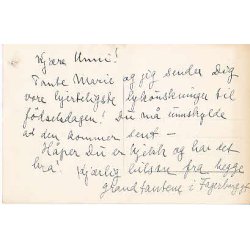 Kjære Unni!
Tante Marie og jeg sender Dig
vore hjerteligste lykønskninger til
fødselsdagen! Du må unnskylde
at den kommer sent –
Håper Du er kjekk og har det
bra! Kjærlig hilsen fra begge
grandtantene i